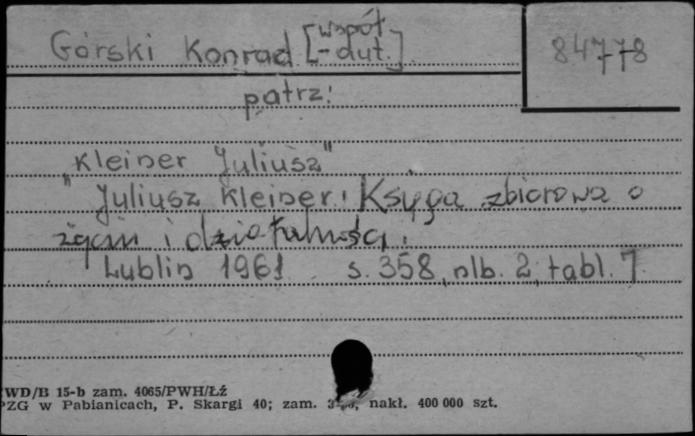 Górski Konrad [współ-
-aut.]
84778
patrz:
"Kleiner Juliusz"
Juliusz Kleiner. Księga zbiorowa o
życiu i działalności.
Lublin 1961 s. 358, nlb. 2, tabl. 7
WD/B 15-b zam. 4065/PWH/Łź
PZG w Pabianicach, P. Skargi 40; zam. nakł. 400 000 szt.